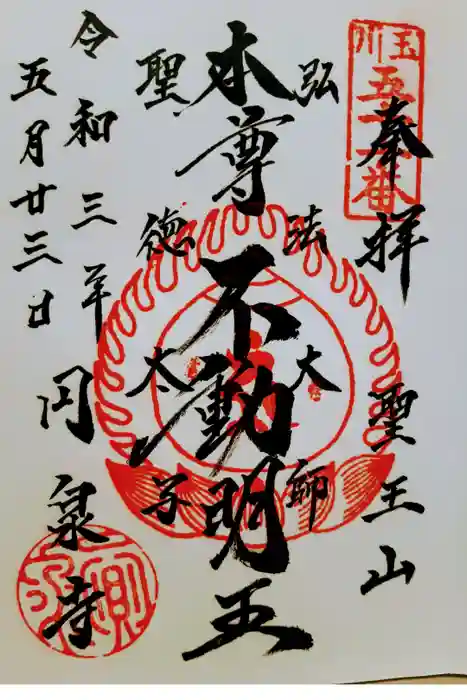 玉川
番
奉拝
聖王山
弘法大師
本尊不動明王
聖徳太子
令和三年
五月廿三日
円泉寺